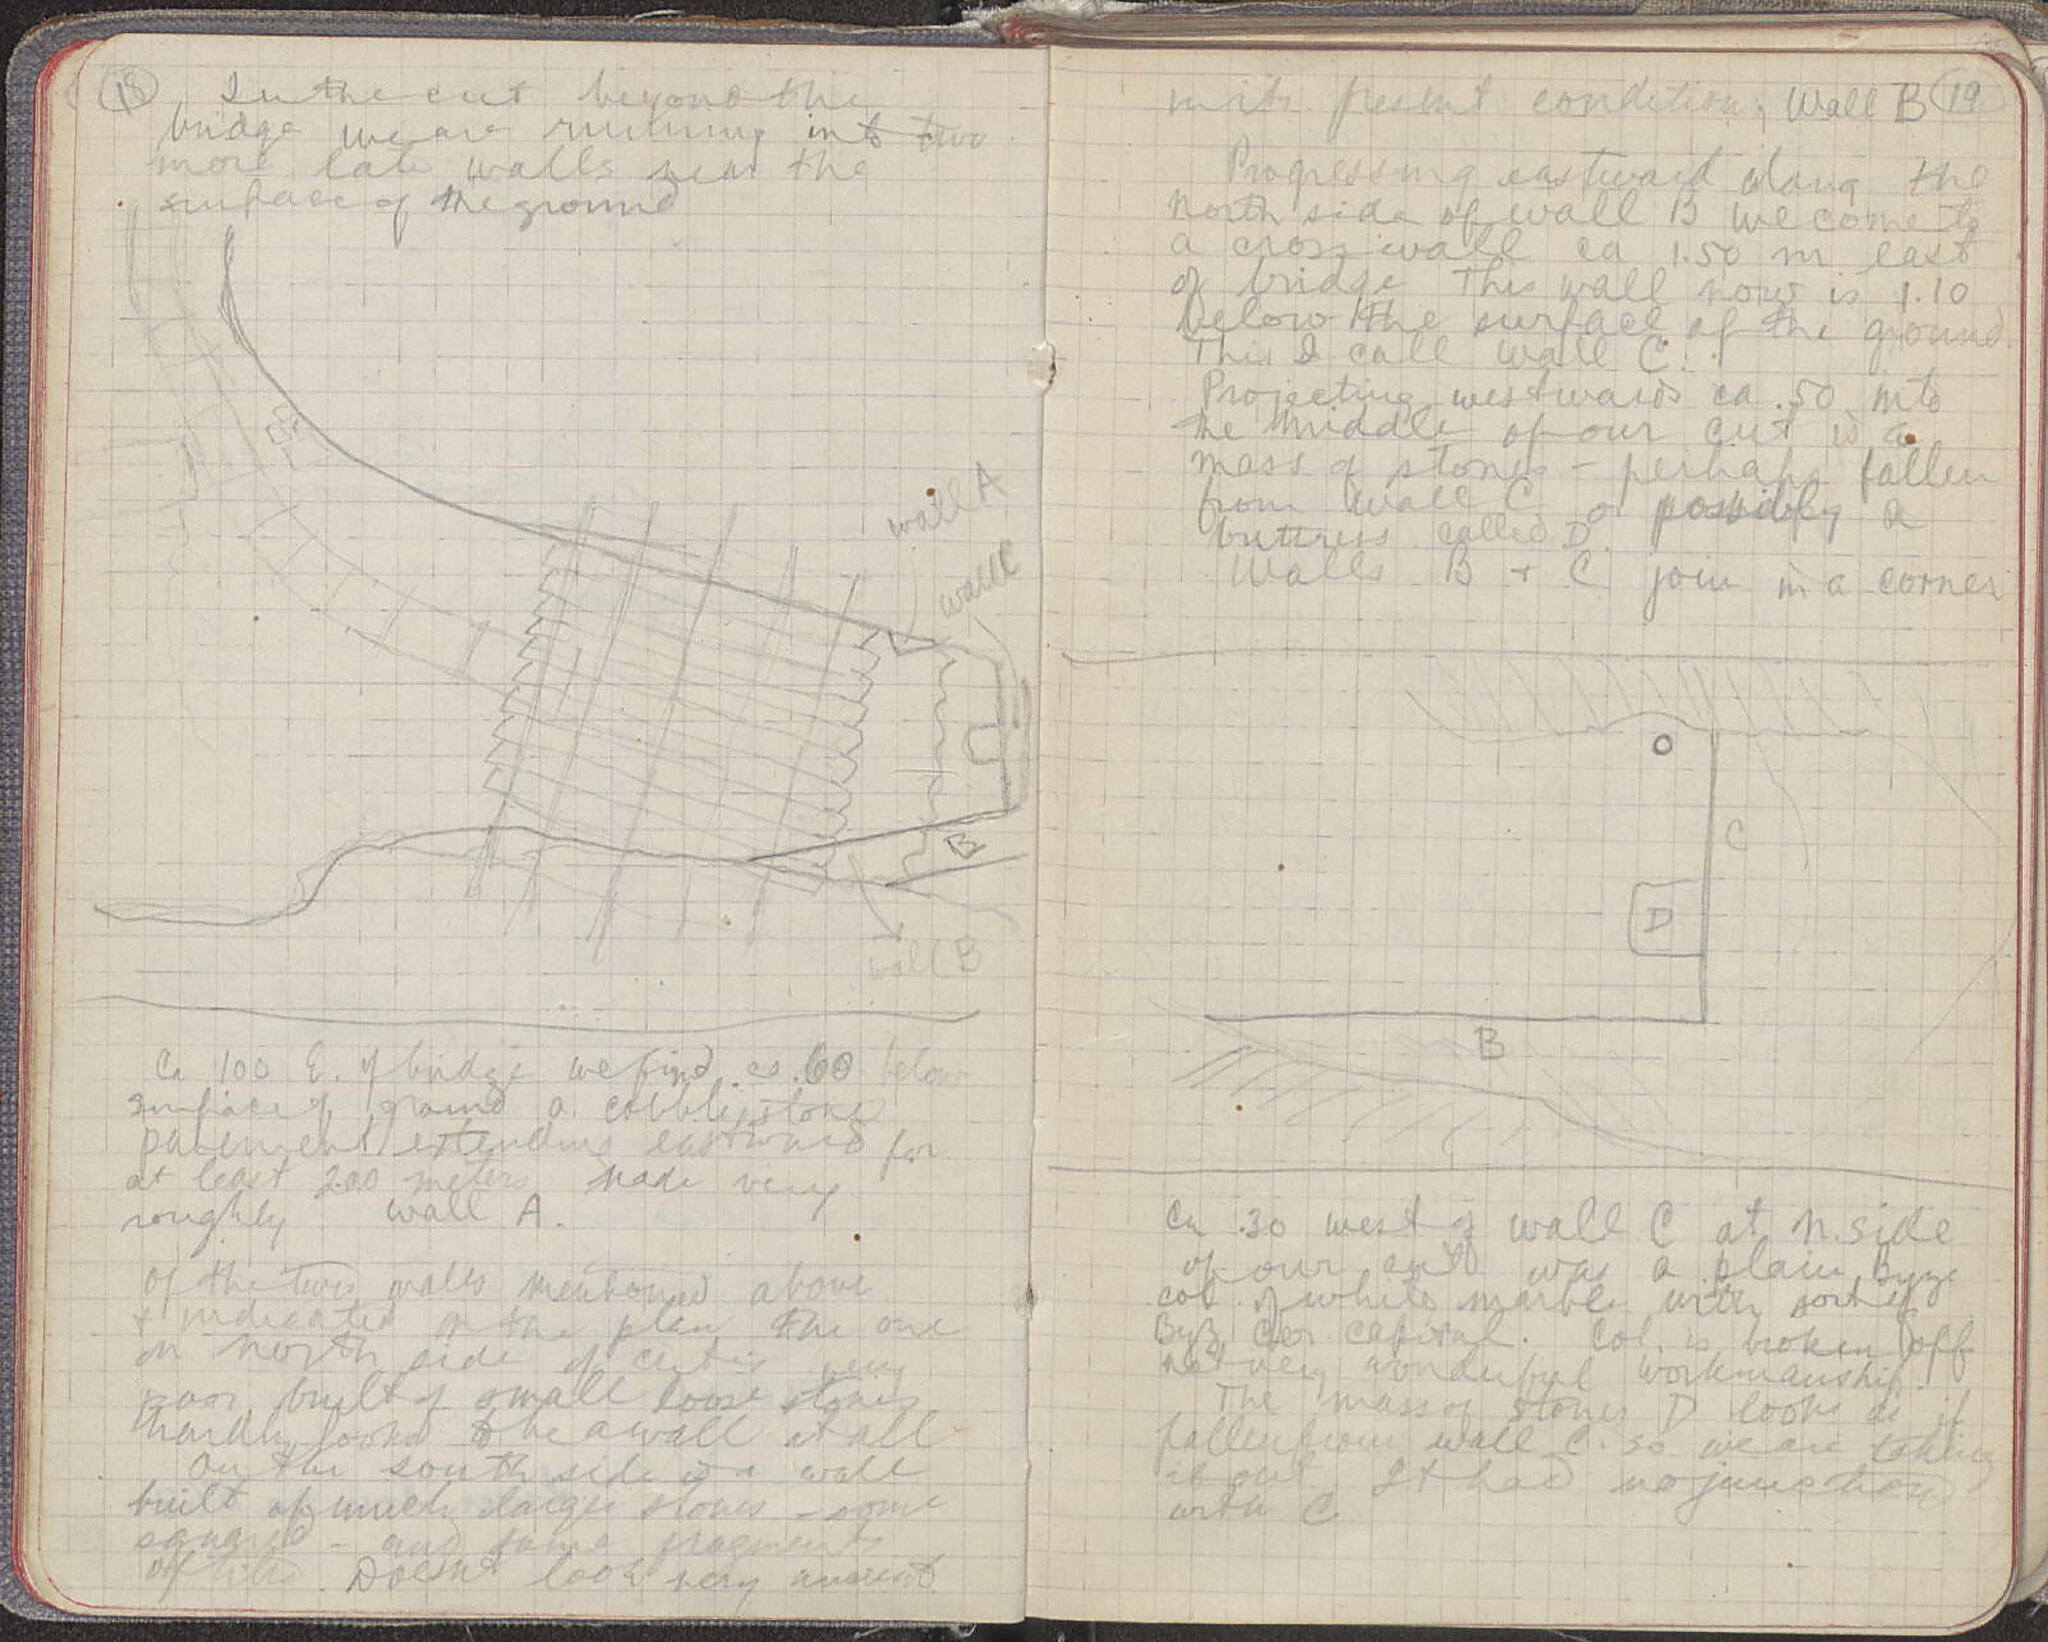 18 In the cut beyond the
bridge we are running into two
more late walls near the
surface of the ground
wall A
wall C
B
wall B
Ca 100 E. of bridge we find ca .60 below
surface of ground a cobblestone
pavement extending eastward for
at least 2.00 meters made very
roughly wall A.
Of the two walls mentioned above
& indicated on the plan the one
on north side of cut is very
poor, built of small loose stones
hardly looks to be a wall at all
On the south side is a wall
built of much larger stones - some
squared - and some fragments
of tiles. Doesn't look very ancient
in its present condition, Wall B 19
Progressing eastward along the
north side of wall B we come to
a cross wall ca 1.50 m east
of bridge This wall now is 1.10
below the surface of the ground.
This I call wall C.
Projecting westwards ca .50 into
the middle of our cut is a
mass of stones - perhaps fallen
from wall C or possibly a
buttress called D.
Walls B + C join in a corner
C
D
B
Ca .30 west of wall C at N. side
of our cut was a plain Byz
col. of white marble with sort of
Byz. Cor capital. Col. is broken off
not very wonderful workmanship.
The mass of stones D looks as if
fallen from wall C. so we are taking
it out It had no junction
with C.